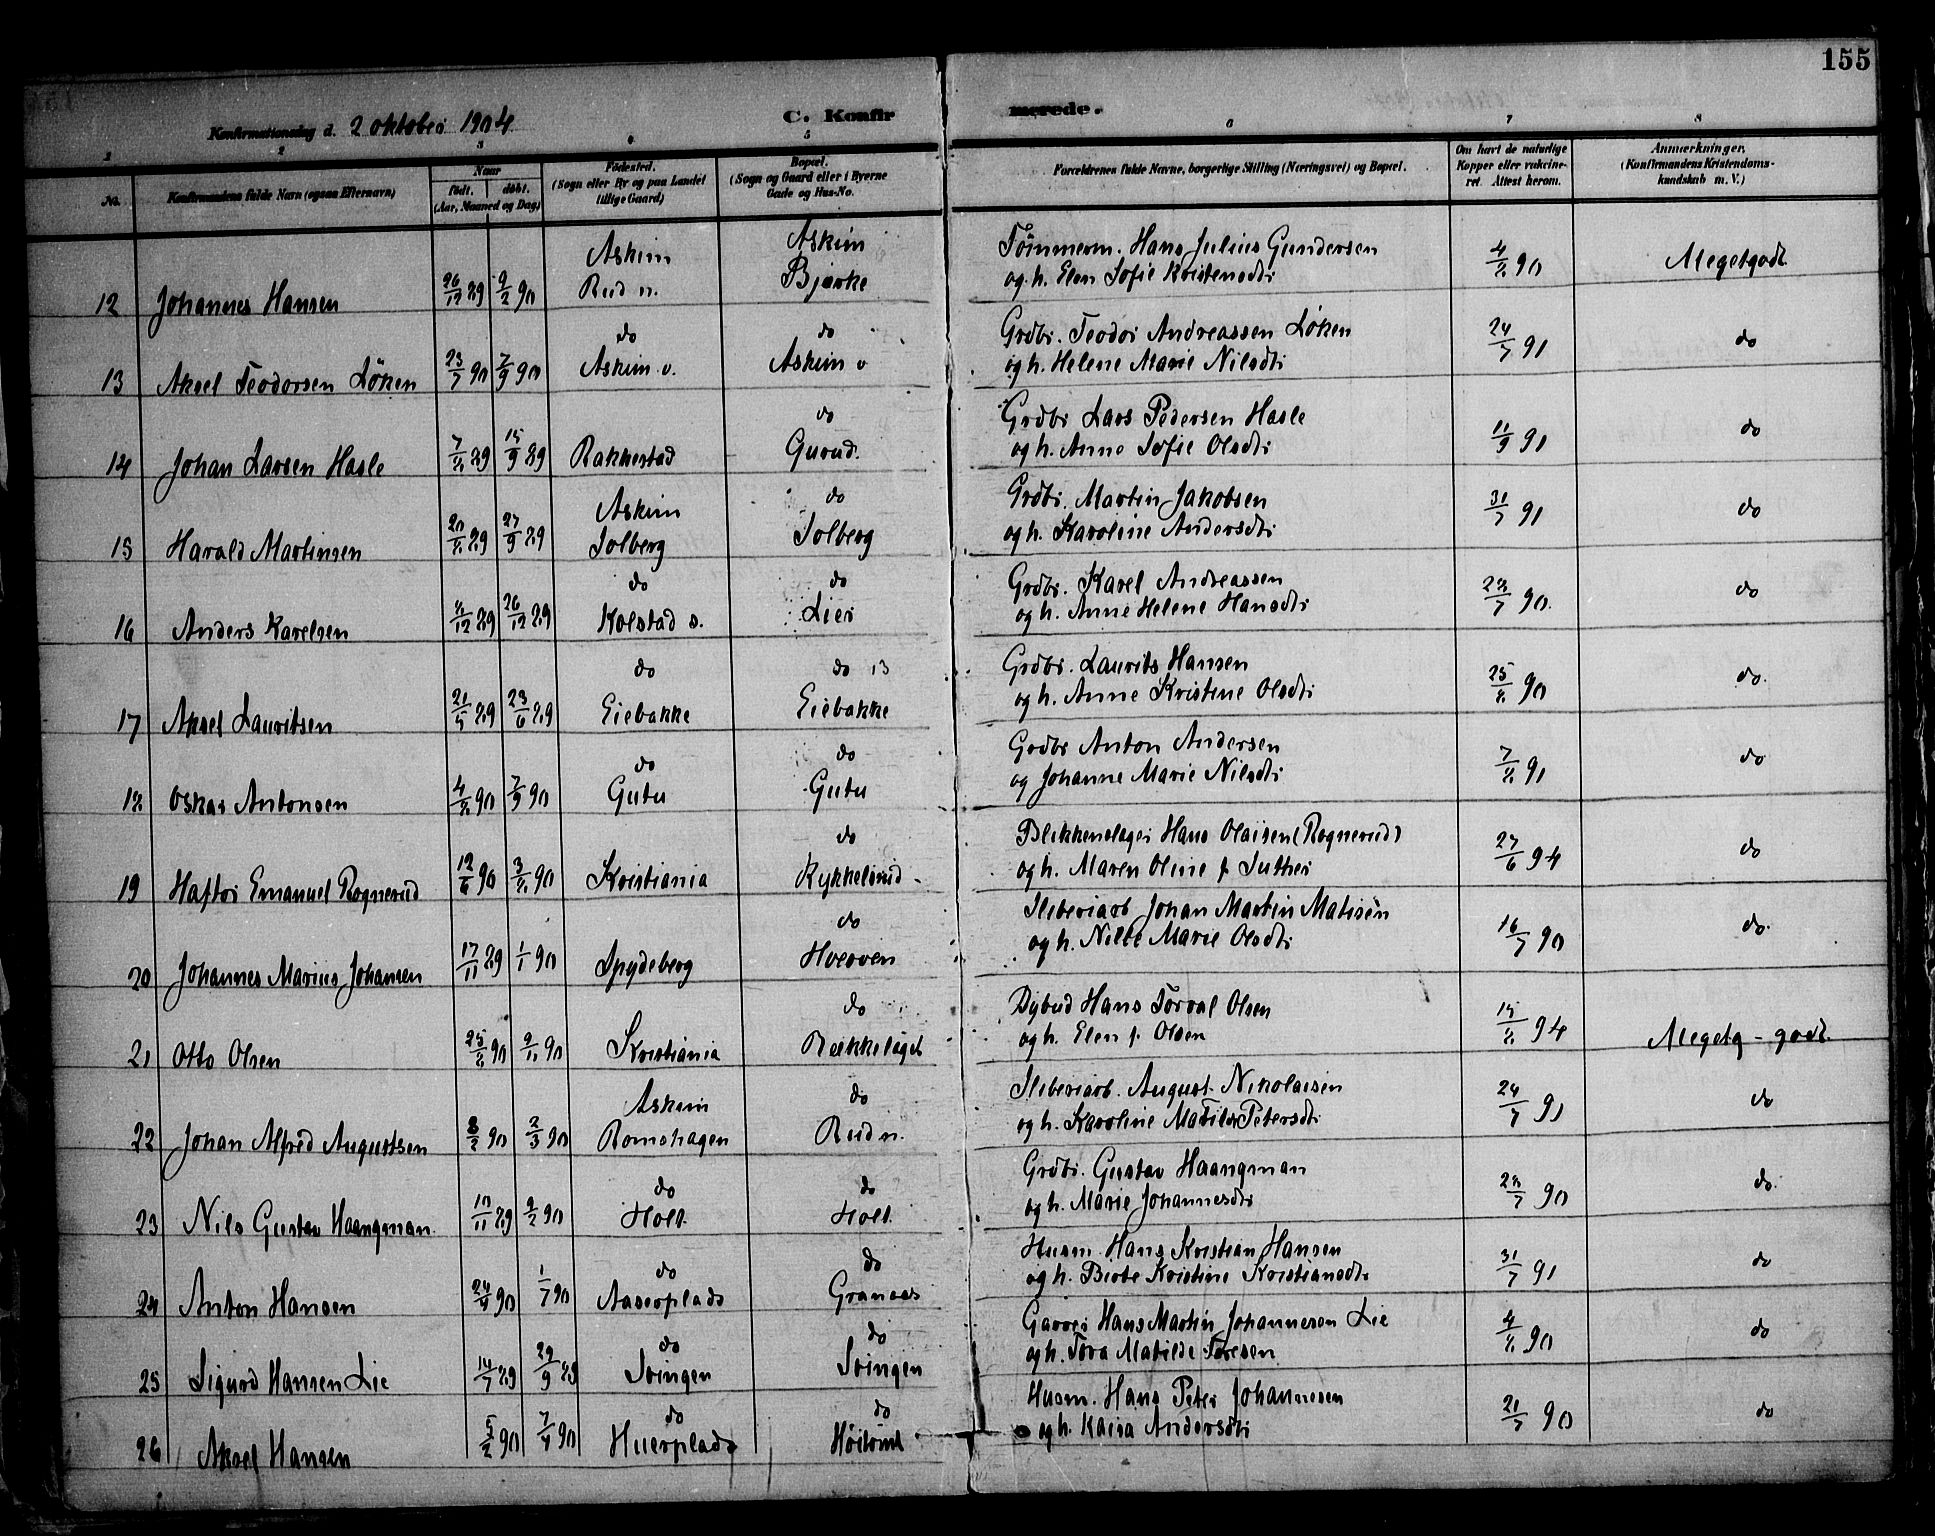 155
Konfirmationsdag d. 2 oktober 1904.
C. Konfirmerede.
1 2 3 4 5 6 7 8
No. Konfirmandens fulde Navn (ogsaa Efternavn) Naar født. døbt. (Aar, Maaned og Dag) Fødested. (Sogn eller By og paa Landet tillige Gaard) Bopæl. (Sogn og Gaard eller i Byerne Gade og Hus-No. Forældrenes fulde Navne, borgerlige Stilling (Næringsvei) og Bopæl. Om havt de naturlige Kopper eller vaccineret. Attest herom. Anmærkninger. (Konfirmandens Kristendomskundskab m. V.)
Askim Askim Tømmerm. Hans Julius Gundersen
12 Johannes Hansen 26/12 89 9/2 90 Rud n. Bjerke og h. Elen Sofie Kristensdtr 4/8 90 Megetgodt
do do Grdbr. Teodor Andreassen Løken
13 Aksel Teodorsen Løken 23/7 90 7/9 90 Askim v. Askim v og h. Helene Marie Nilsdtr 24/7 91 do
do Grdbr Lars Pedersen Hasle
14 Johan Larsen Hasle 7/8 89 15/9 89 Rakkestad Gurud. og h. Anne Sofie Olsdtr 11/9 91 do
Askim do Grdbr. Martin Jakobsen
15 Harald Martinsen 20/8 89 27/9 89 Solberg Solberg og h. Karoline Andersdtr 31/7 91 do
do do Grdbr. Karel Andreassen
16 Anders Karelsen 8/12 89 26/12 89 Kolstad s. Lier og h. Anne Helene Hansdtr 28/7 90. do
do do 13 Grdbr. Laurits Hansen
17 Aksel Lauritsen 21/5 89 23/6 89 Eiebakke Eiebakke og h. Anne Kristine Olsdtr 25/8 90 do.
do do Grdbr Anton Andersen
18 Oskar Antonsen 4/8 90 7/9 90 Gutu Gutu og Johanne Marie Nilsdtr 7/8 91 do
do Blikkenslager Hans Olaisen (Rognerud)
19 Haftor Emanuel Rognerud 12/6 90 3/8 90 Kristiania Kykkelsrud og h. Maren Oline f. Suther 27/6 94 do
do Sliberiarb Johan Martin Matisen
20 Johannes Marius Johansen 17/11 89 1/1 90 Spydeberg Hverven og h. Nille Marie Olsdtr 16/7 90 do.
do Bybud Hans Torval Olsen
21 Otto Olsen 25/8 90 9/11 90 Kristiania Rækkelaget og h. Elen f. Olsen 15/8 94 Megetg - godt.
Askim do Sliberiarb. August Nikolaisen
22 Johan Alfred Augustsen 8/2 90 2/3 90 Romshagen Rud n. og h. Karoline Matilde Petersdtr 24/7 91 do
do do Grdbr. Gustav Haangman
23 Nils Gustav Haangman. 10/11 89 9/2 90 Holt. Holt. og h. Marie Johannesdtr 28/7 90 do.
do do Husm. Hans Kristian Hansen
24 Anton Hansen 24/4 90 1/7 90 Aaserplads Granaas og h. Berte Kristine Kristiansdtr 31/7 91 do
do do Garver Hans Martin Johannesen Lie
25 Sigurd Hansen Lie 14/7 89 29/9 89 Svingen Svingen og h. Tora Matilde Toresen 4/8 90 do
do do Husm. Hans Peter Johannesen
26 Aksel Hansen 5/2 90 7/4 90 Huerplads og h. Kaisa Andersdtr 21/7 90 do